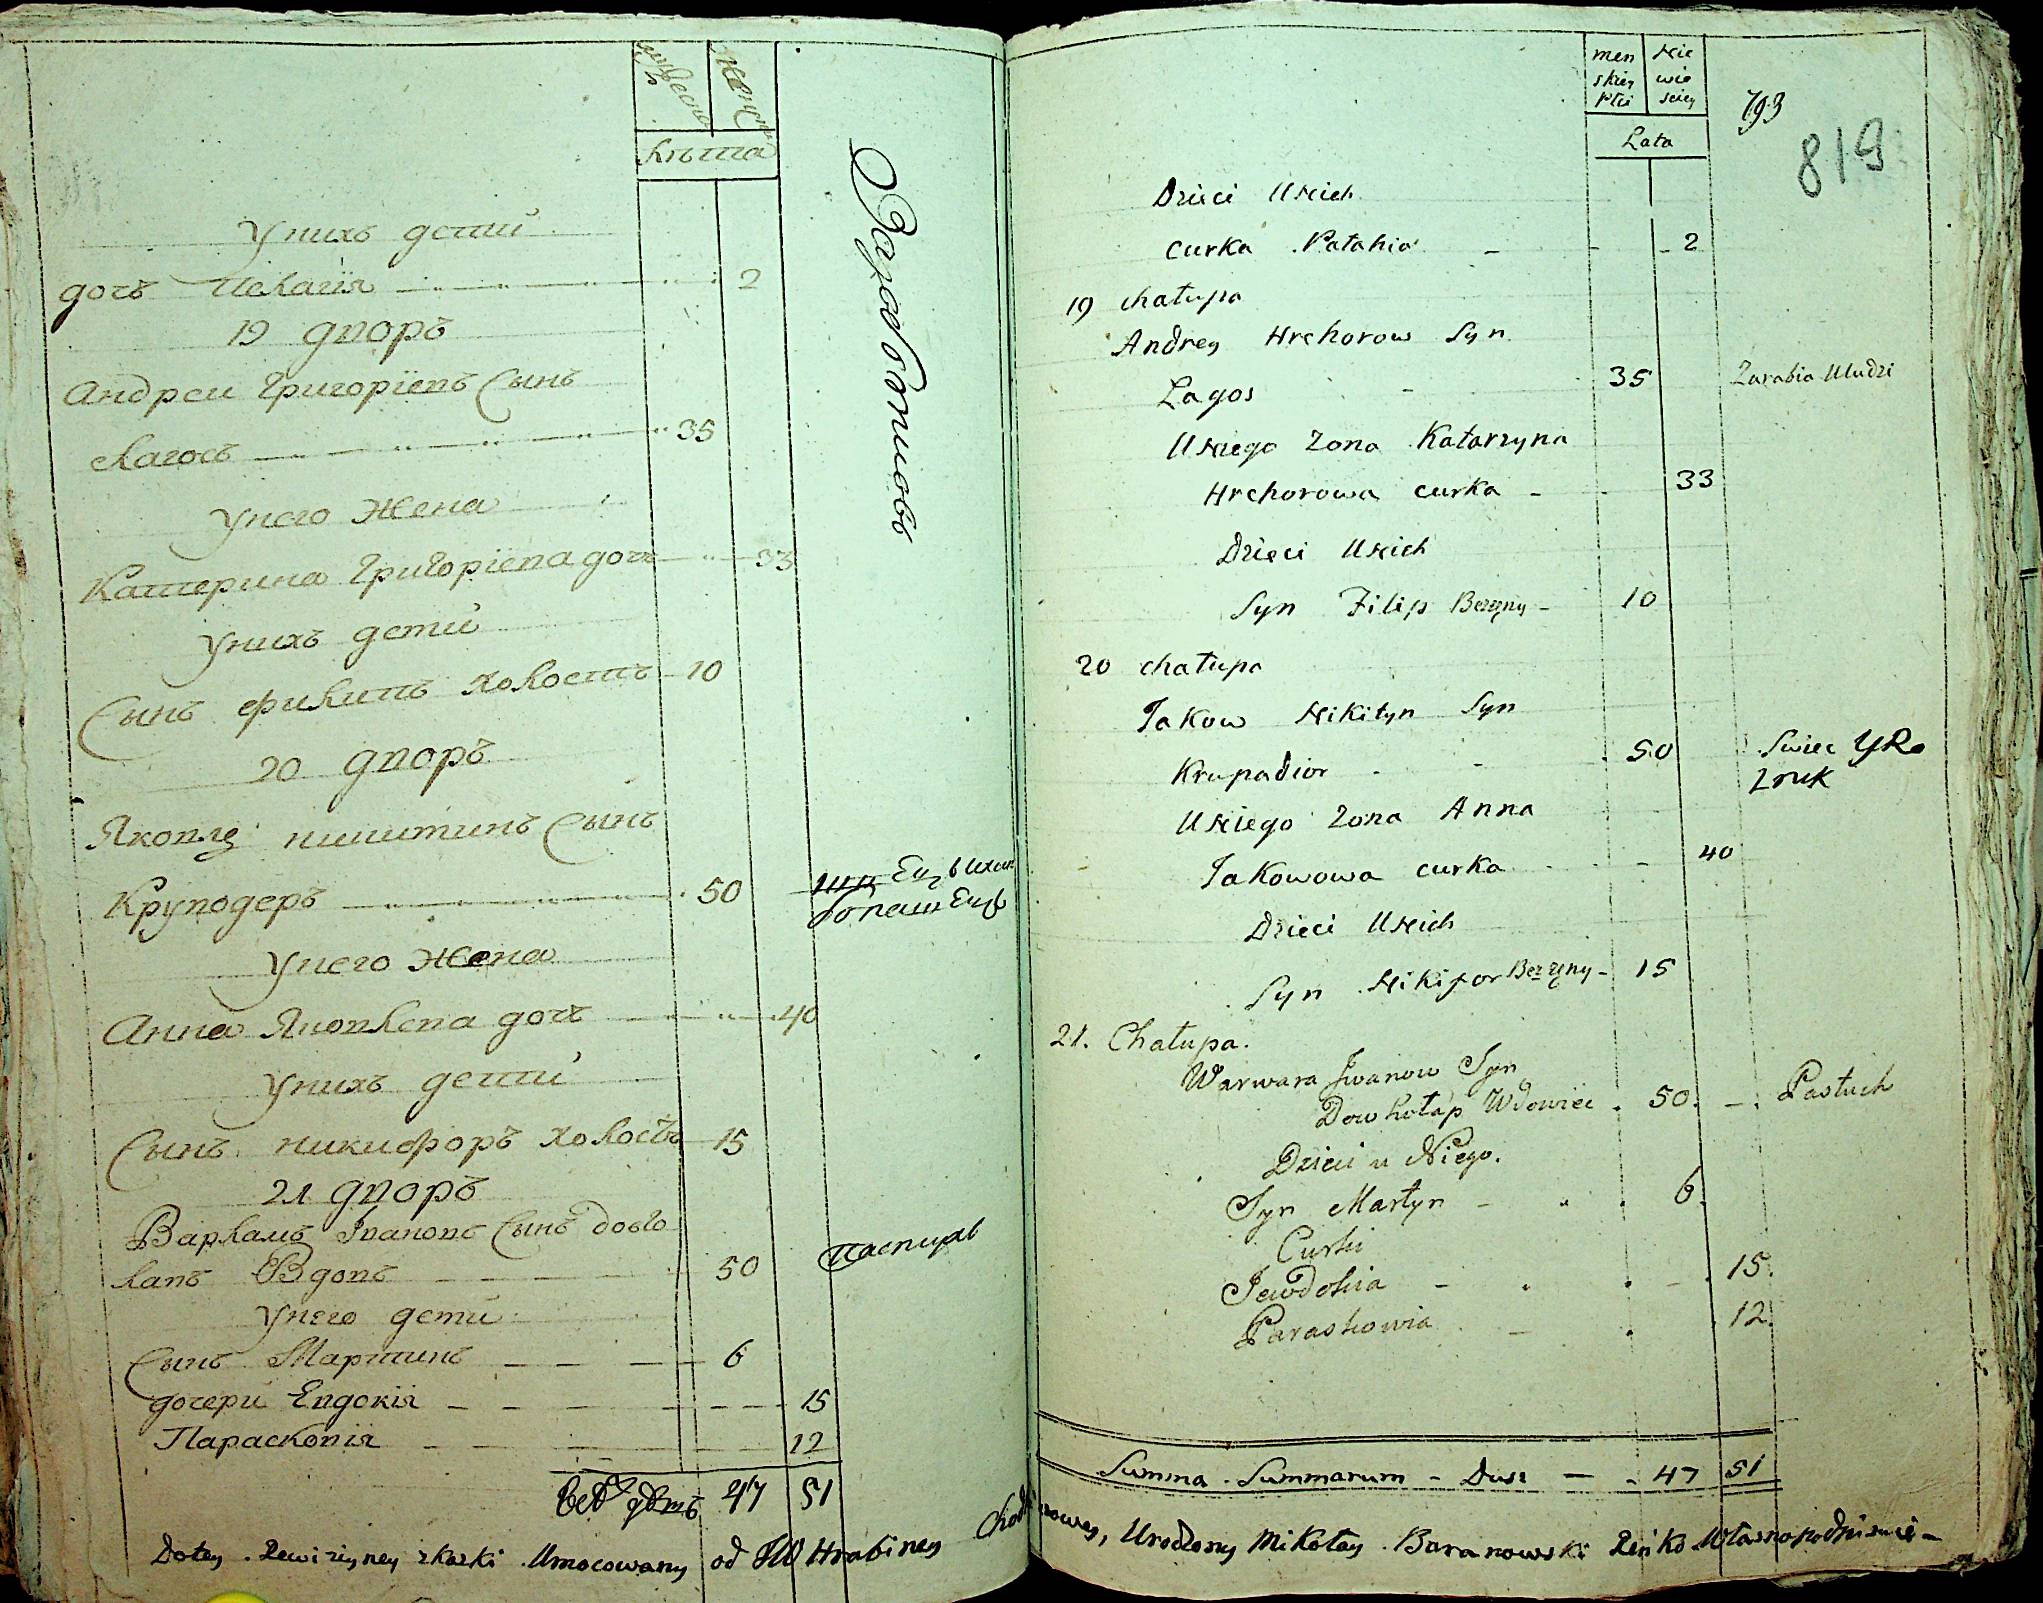 мужеска
женска
лѣта
У нихъ дети
дочъ Пелагія 2
19 дворъ
Андреи Григоріевъ Сынъ
Лагосъ 35
У него жена
Катерина Григоріева дочъ 33
У нихъ дети
Сынъ Филипъ холостъ 10
20 дворъ
Яковлъ никитинъ Сынъ
Круподеръ 50
У него жена
Анна Яковлева дочъ 40
У нихъ дети
Сынъ никифоръ холостъ 15
21 дворъ
Варламъ Івановъ Сынъ довго
лапъ Вдовъ 50 пастухъ
У него дети
Сынъ Мартинъ 6
дочери Евдокія 15
Парасковія 12
47 51
Заработниовъ
men skiey płci
Nie wie sciey
Lata
793
819
Dzieci U Nich
Curka Pałahia 2
19 chałupa
Andrey Hrehorow Syn
Łagos 35 Zarabia U ludzi
U Niego Zona Katarzyna
Hrehorowa curka 33
Dzieci U Nich
Syn Filip Bezzęny 10
20 chałupa
Jakow Nikityn Syn
Krupadior 50 Swiec
U Niego Zona Anna
Jakowowa curka 40
Dzieci U Nich
Syn Nikifor Bezzęny 15
21. Chałupa.
Warwara Jwanow Syn
Dowhołap Wdowiec 50. Pastuch
Dzieci u Niego.
Syn Martyn 6.
Curki
Jewdokia 15.
Paraskowia 12.
Summa Summarum Dusz 47 51
Dotey Rewizyney skazki Umocowany od JW Hrabiney Urodzony Mikołay Baranowski Ręko Własno podpisuie